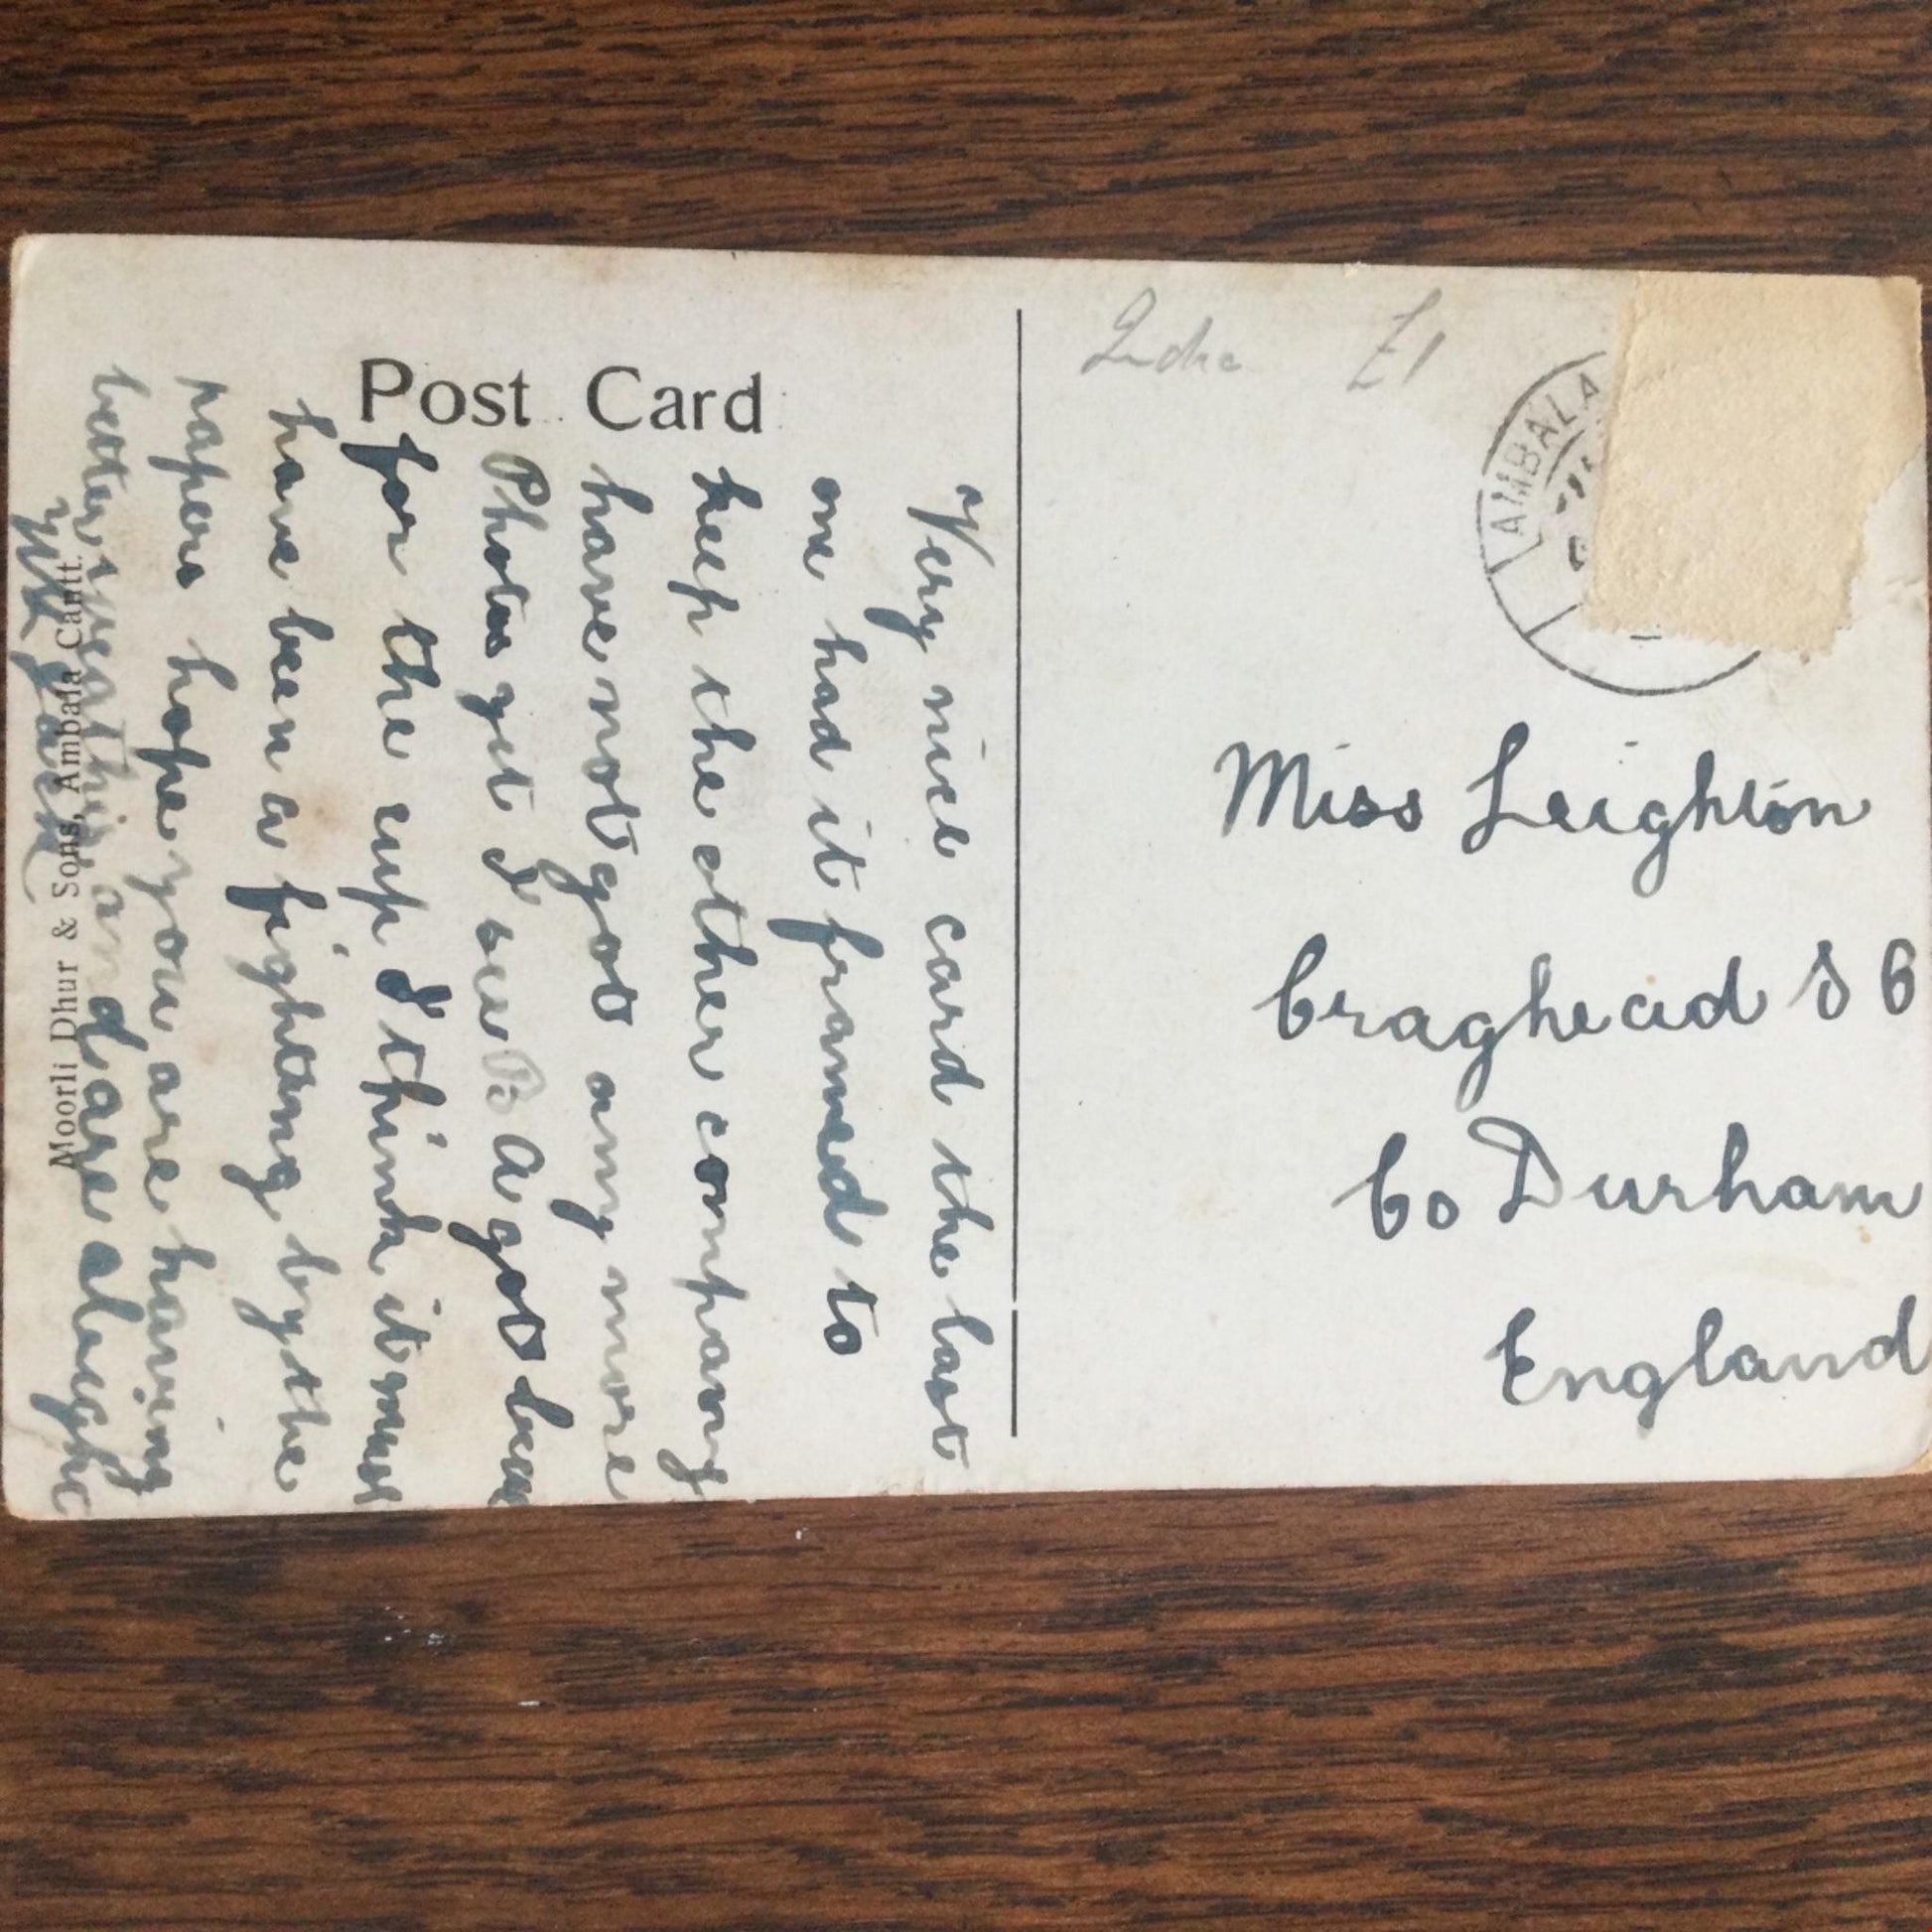 Post Card
India £1
AMBALA
Very nice card the last
one had it framed to
keep the other company
have not got any more
Photos yet I see B. A got beat
for the cup I think it must
have been a fighting by the
papers hope you are having
better weather and are alright
Moorli Dhur & Sons, Ambala Cantt.
Miss Leighton
Craghead S O
Co Durham
England